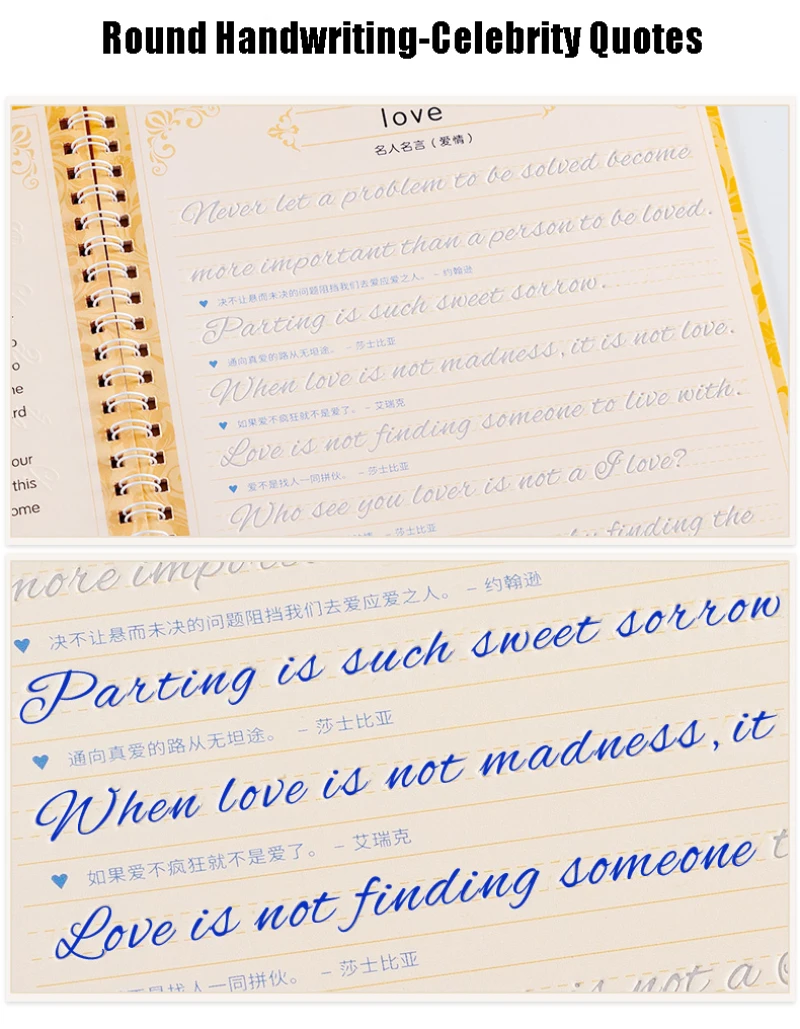 Round Handwriting-Celebrity Quotes
love
名人名言（爱情）
Never let a problem to be solved become
more important than a person to be loved.
决不让悬而未决的问题阻挡我们去爱应爱之人。 – 约翰逊
Parting is such sweet sorrow.
通向真爱的路从无坦途。 – 莎士比亚
When love is not madness, it is not love.
如果爱不疯狂就不是爱了。 – 艾瑞克
Love is not finding someone to live with.
爱不是找人一同拼伙。 – 莎士比亚
Who see you lover is not a I love?
– 莎士比亚
finding the
rd
our
this
ome
more
决不让悬而未决的问题阻挡我们去爱应爱之人。 – 约翰逊
Parting is such sweet sorrow
通向真爱的路从无坦途。 – 莎士比亚
When love is not madness, it
如果爱不疯狂就不是爱了。 – 艾瑞克
Love is not finding someone t
是找人一同拼伙。 – 莎士比亚
is not a